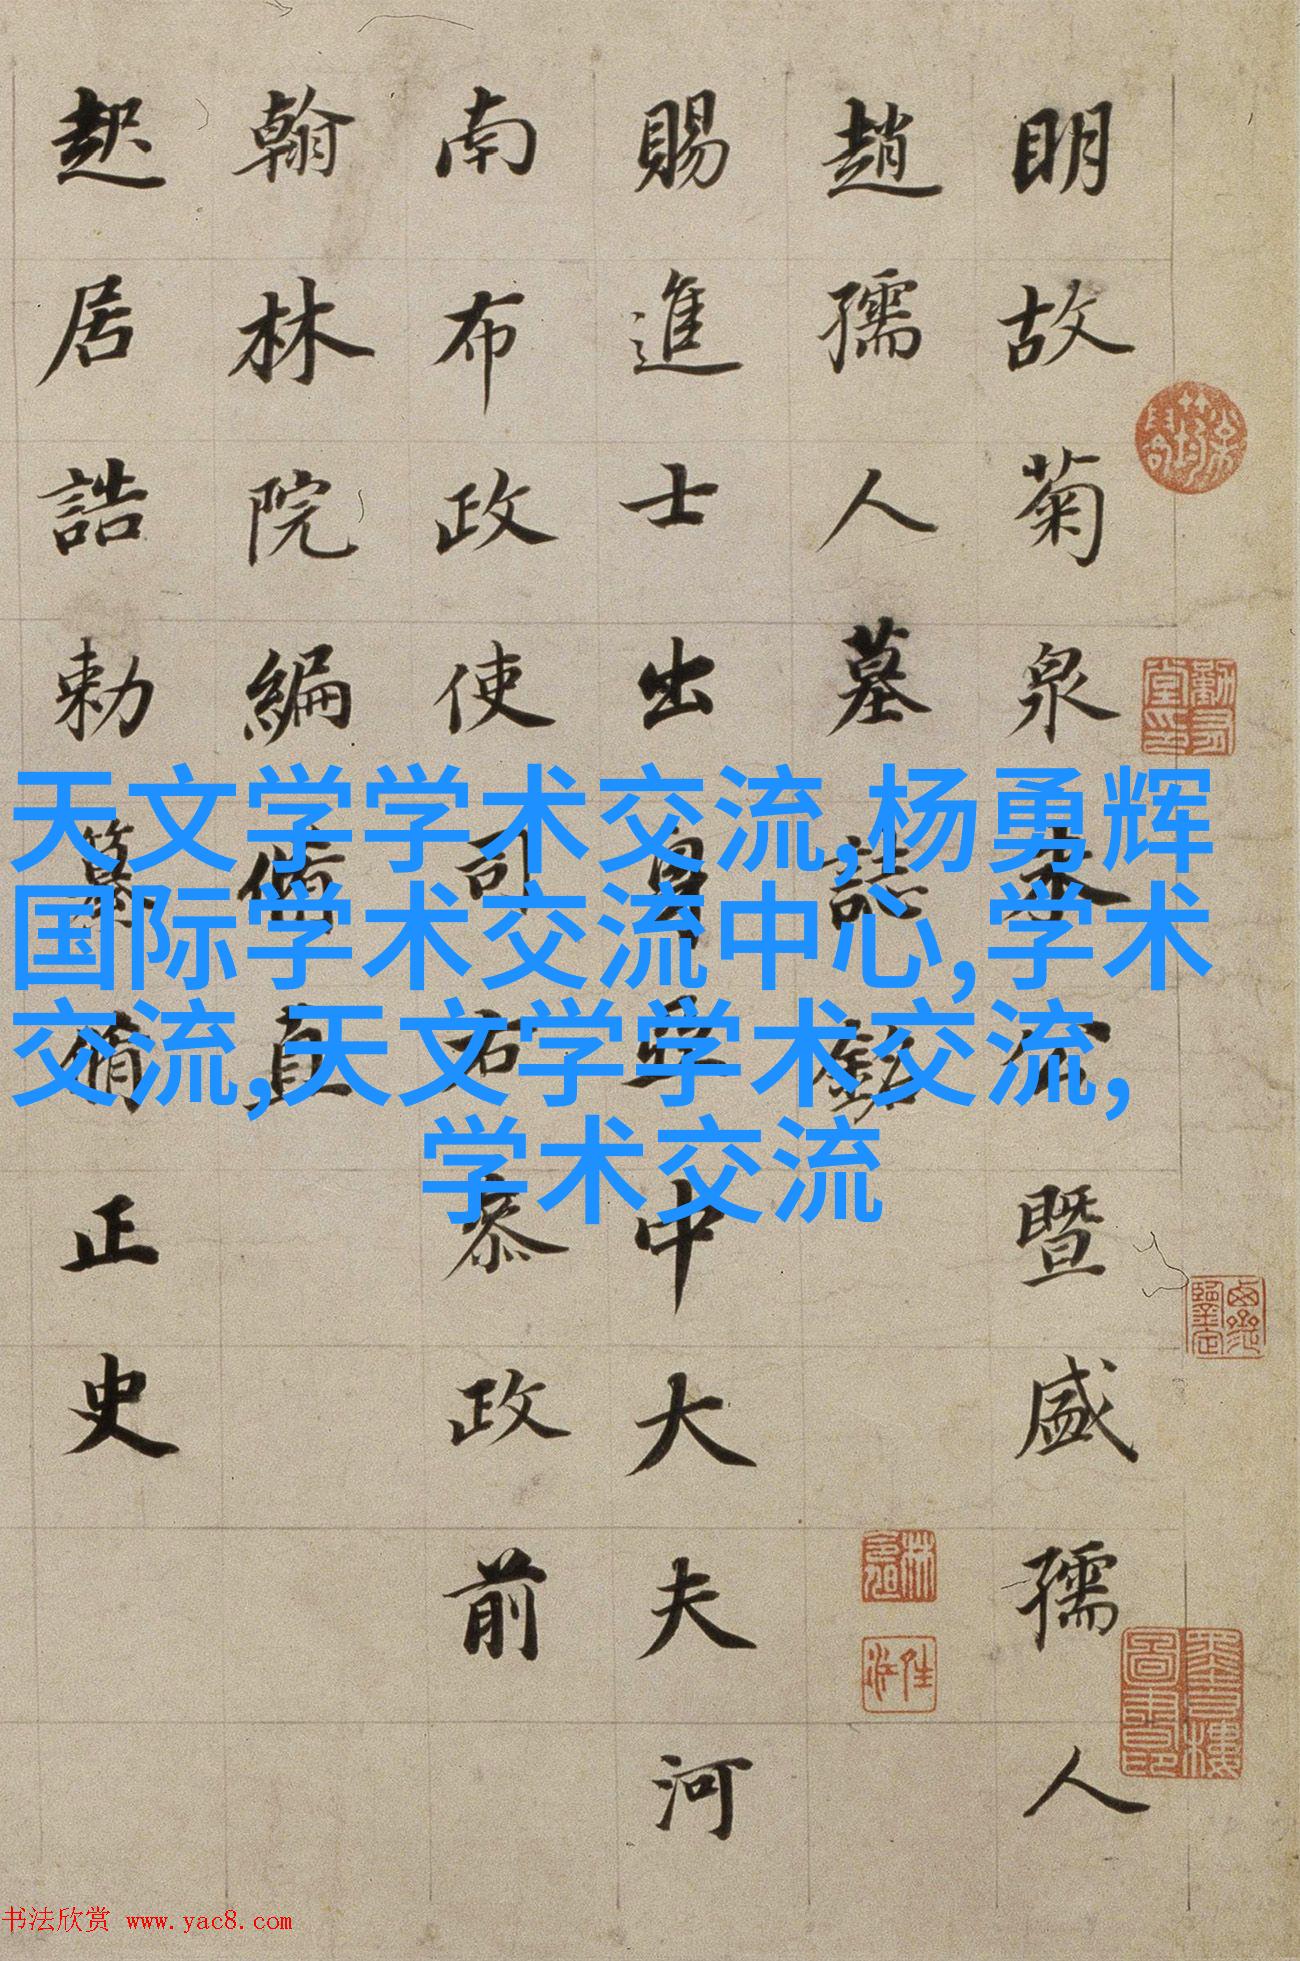 明故菊泉朱公暨盛孺人
趙孺人墓誌銘
賜進士出身亞中大夫河
南布政使司右叅政前
翰林院編脩直
起居誥勅纂脩正史
天文学学术交流,杨勇辉
国际学术交流中心,学术
交流,天文学学术交流,
学术交流
书法欣赏 www.yac8.com